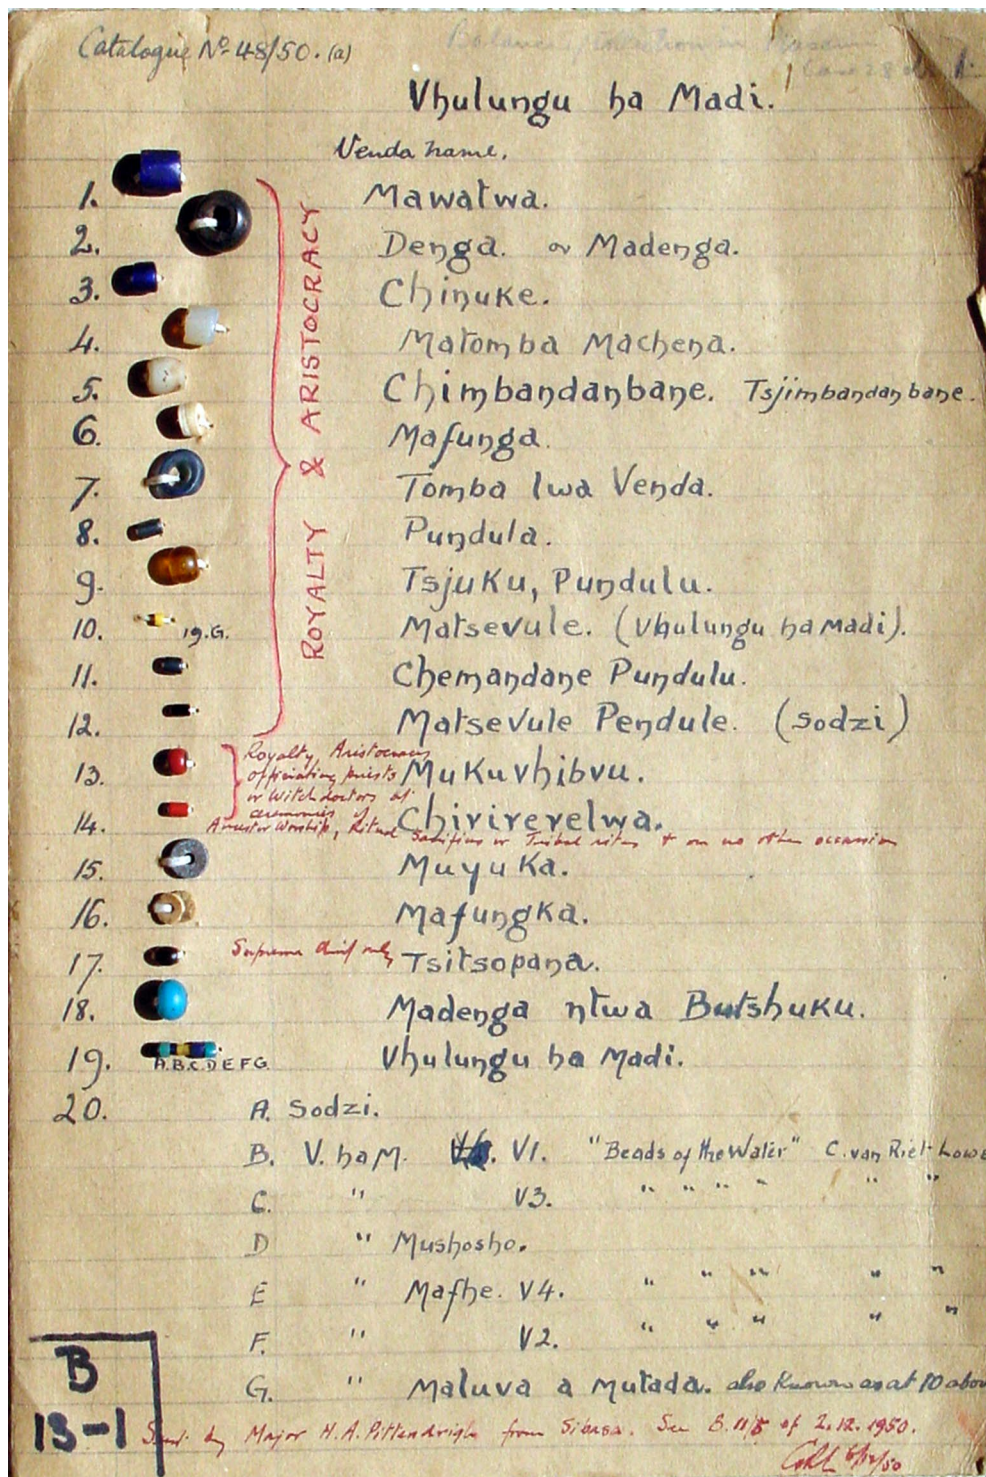 Catalogue No 48/50. (a)
1.
Vhulungu ha Madi.
Venda name.
1. Mawatwa.
2. Denga. or Madenga.
3. Chinuke.
4. Matomba Machena.
5. Chimbandanbane. Tsjimbandanbane.
6. Mafunga.
7. Tomba lwa Venda.
8. Pundula.
9. Tsjuku, Pundulu.
10. 19.G. Matsevule. (Vhulungu ha Madi).
11. Chemandane Pundulu.
12. Matsevule Pendule. (Sodzi)
ROYALTY & ARISTOCRACY
Royalty, Aristocracy
officiating priests
or Witchdoctors at
ceremonies of
Ancestor Worship, Ritual Sacrifices or Tribal rites & on no other occasion
13. Mukuvhibvu.
14. Chivirevelwa.
15. Muyuka.
16. Mafungka.
17. Supreme chief only Tsitsopana.
18. Madenga ntwa Butshuku.
19. A.B.C.D.E.F.G. Vhulungu ha Madi.
20. A. Sodzi.
B. V. ha M. V1. "Beads of the Water" C. van Riet Lowe
C. " V3. " " " " " "
D " Mushosho.
E " Mafhe. V4. " " " " "
F. " V2. " " " " "
G. " Maluva a Mutada. also known as at 10 above
B
13-1
Sent by Major H.A. Pittendrigh from Sibasa. See B.11/5 of 2.12.1950.